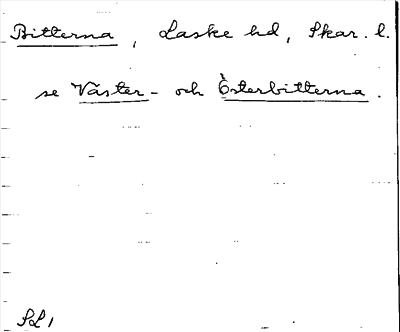 Bitterna, Laske hd, Skar. l.
se Väster- och Österbitterna.
SL1